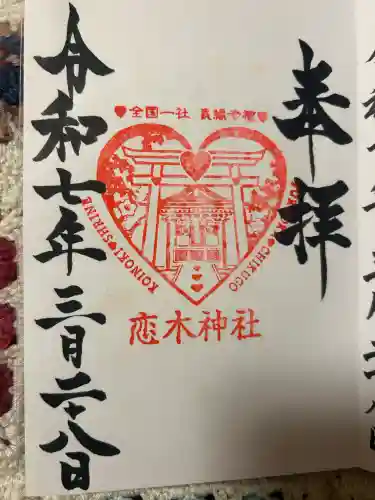 奉拝
全国一社 良縁幸福
KOINOKI SHRINE
CHIKUGO
恋木神社
令和七年三月二十八日